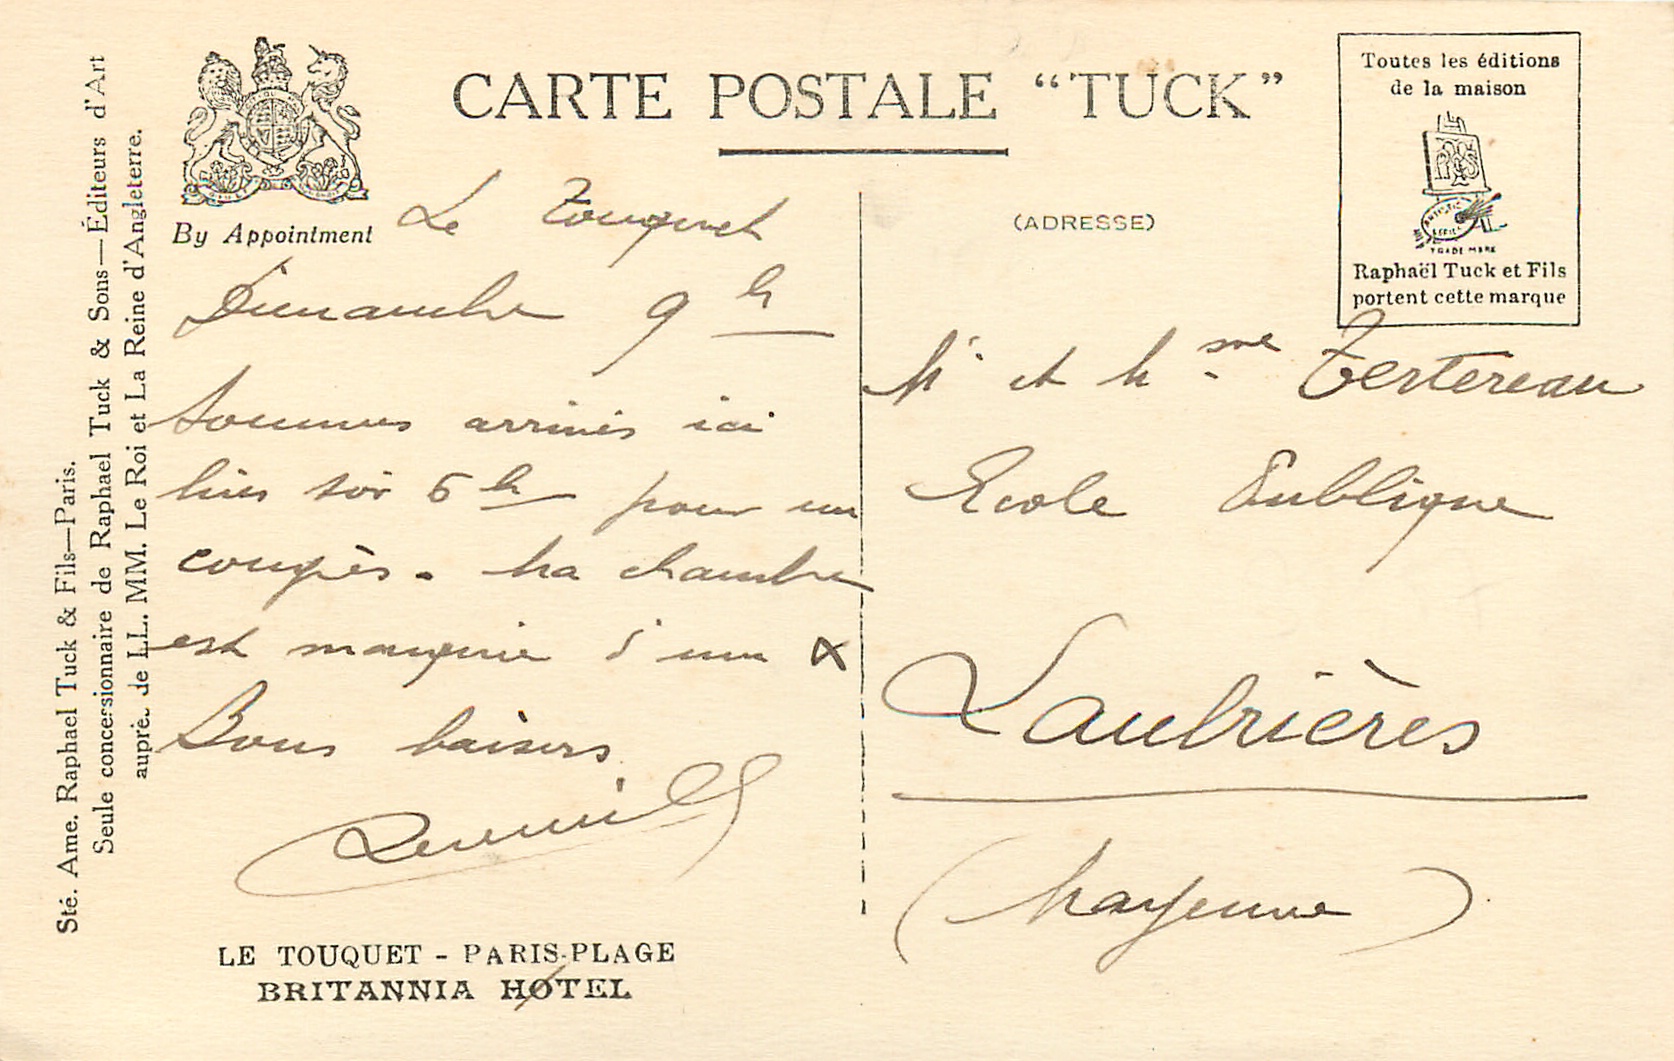 CARTE POSTALE “TUCK”
By Appointment
(ADRESSE)
Toutes les éditions
de la maison
Raphaël Tuck et Fils
portent cette marque
Sté. Ame. Raphael Tuck & Fils—Paris.
Seule concessionnaire de Raphael Tuck & Sons—Éditeurs d'Art
auprè. de LL. MM. Le Roi et La Reine d'Angleterre.
Le Touquet
Dimanche 9 h
Sommes arrivés ici
hier soir 6 h pour un
congrès. Ma chambre
est marquée d'une x
Bons baisers
Mr et Mme Tertereau
Ecole Publique
Laubrières
(Mayenne)
LE TOUQUET - PARIS-PLAGE
BRITANNIA HOTEL